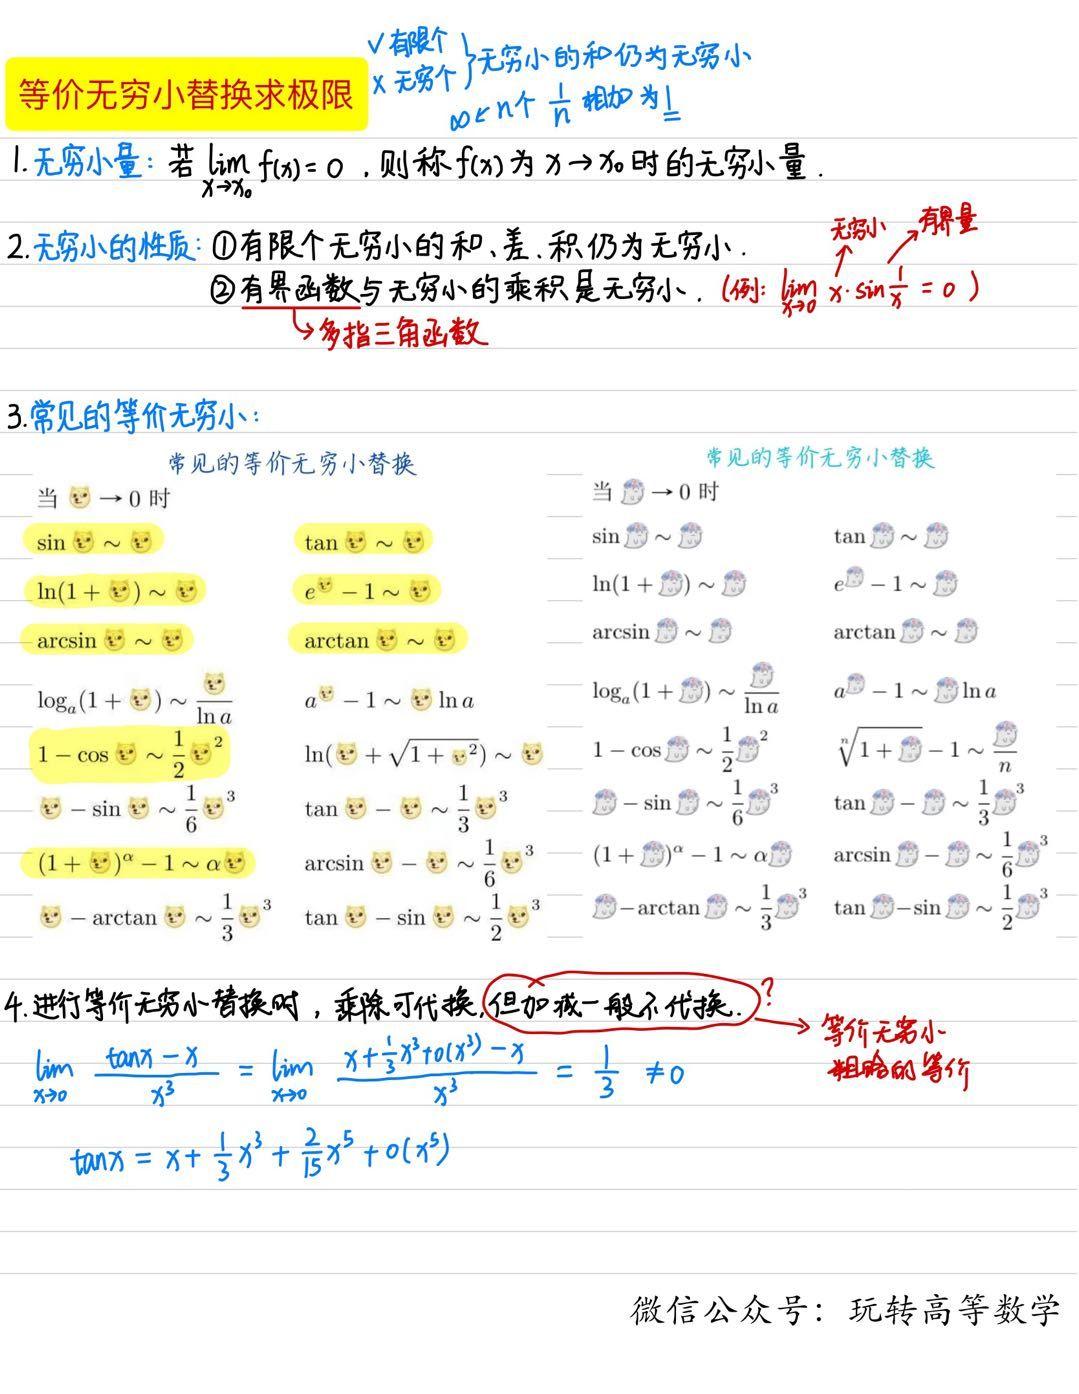 ✓有限个
×无穷个 } 无穷小的和仍为无穷小
∞ ← n个 1/n 相加为1
等价无穷小替换求极限
1.无穷小量：若 lim x→x₀ f(x)=0，则称f(x)为x→x₀时的无穷小量.
2.无穷小的性质：①有限个无穷小的和、差、积仍为无穷小.
无穷小 有界量
②有界函数与无穷小的乘积是无穷小. (例: lim x→0 x·sin 1/x = 0)
→多指三角函数
3.常见的等价无穷小：
常见的等价无穷小替换
当 → 0 时
sin ~ tan ~
ln(1 + ) ~ e − 1 ~
arcsin ~ arctan ~
logₐ(1 + ) ~ /ln a a − 1 ~ ln a
1 − cos ~ 1/2 ² ln( + √(1 + ²)) ~
− sin ~ 1/6 ³ tan − ~ 1/3 ³
(1 + )^α − 1 ~ α arcsin − ~ 1/6 ³
− arctan ~ 1/3 ³ tan − sin ~ 1/2 ³
常见的等价无穷小替换
当 → 0 时
sin ~ tan ~
ln(1 + ) ~ e − 1 ~
arcsin ~ arctan ~
logₐ(1 + ) ~ /ln a a − 1 ~ ln a
1 − cos ~ 1/2 ² ⁿ√(1 + ) − 1 ~ /n
− sin ~ 1/6 ³ tan − ~ 1/3 ³
(1 + )^α − 1 ~ α arcsin − ~ 1/6 ³
−arctan ~ 1/3 ³ tan −sin ~ 1/2 ³
4.进行等价无穷小替换时，乘除可代换，但加减一般不代换.?
→ 等价无穷小
粗略的等价
lim x→0 (tanx − x)/x³ = lim x→0 (x + 1/3 x³ + o(x³) − x)/x³ = 1/3 ≠ 0
tanx = x + 1/3 x³ + 2/15 x⁵ + o(x⁵)
微信公众号：玩转高等数学